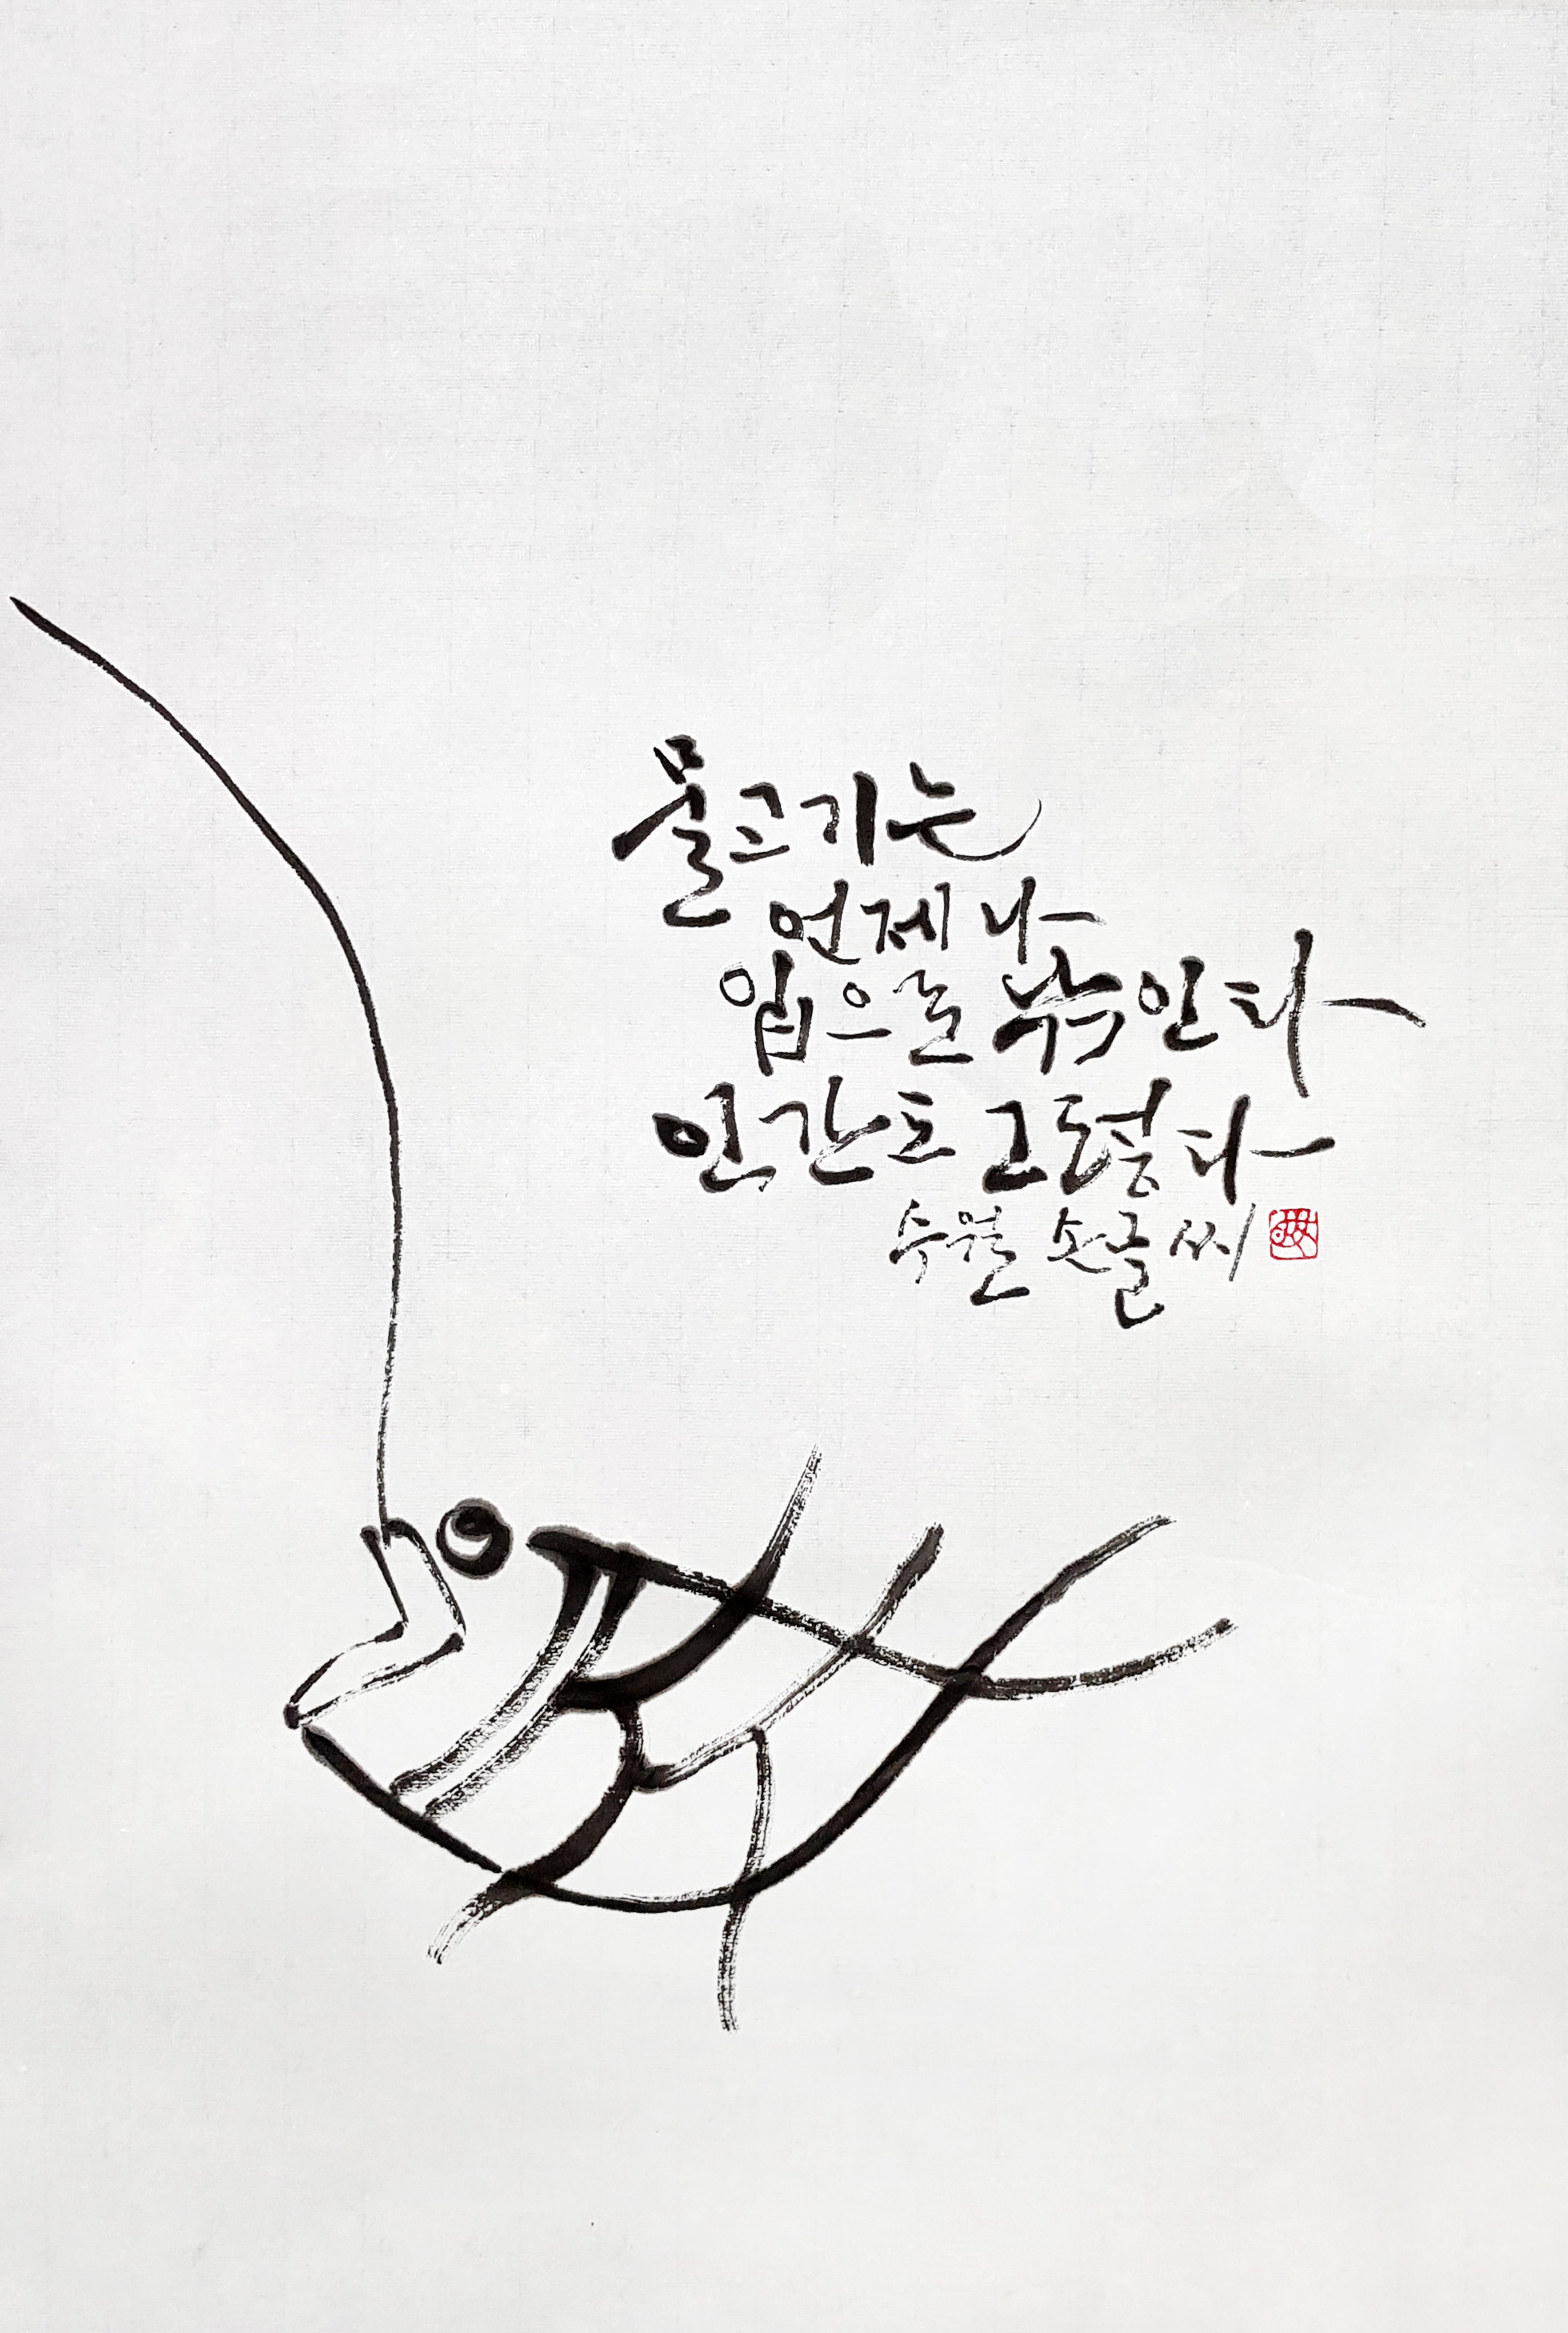 물고기는
언제나
입으로 낚인다
인간도 그렇다
수월 손글씨